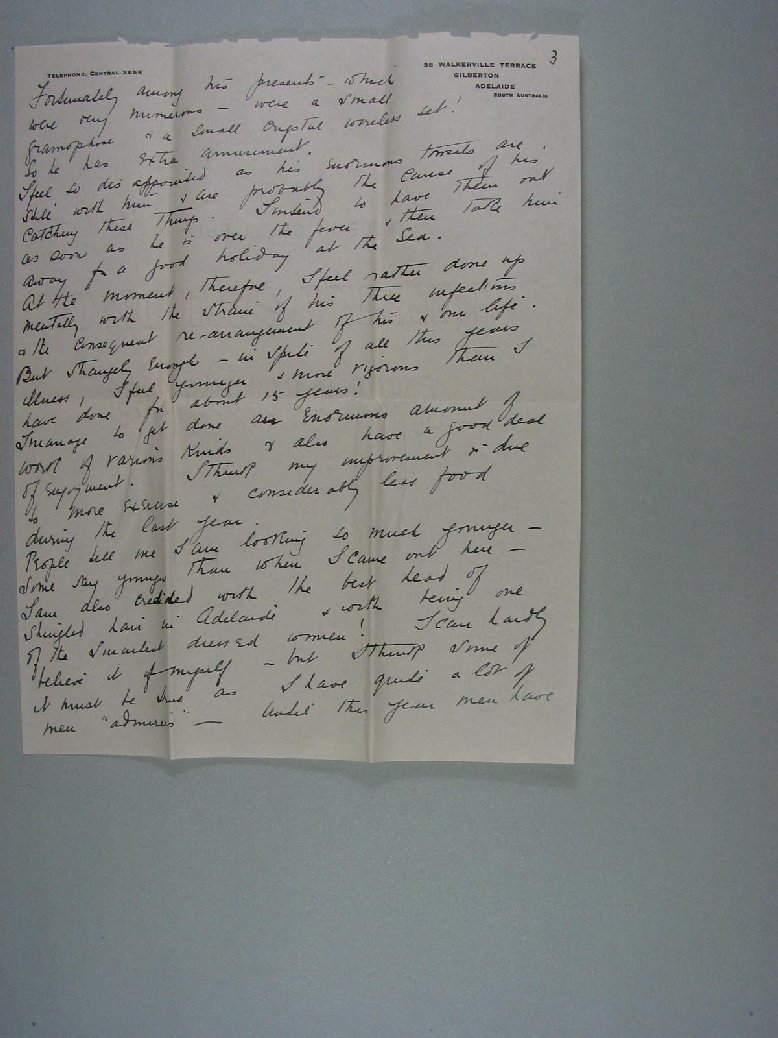 3
TELEPHONE, CENTRAL
36 WALKERVILLE TERRACE
GILBERTON
ADELAIDE
SOUTH AUSTRALIA
Fortunately among his presents - which
were very numerous - were a small
gramophone & a small crystal wireless set!
So he has extra amusement.
I feel so disappointed as his enormous tonsils are
still with him & are probably the cause of his
catching these things. I intend to have them out
as soon as he is over the fever & then take him
away for a good holiday at the Sea.
At the moment, therefore, I feel rather done up
mentally with the strain of his three infections
& the consequent re-arrangement of his & our life.
But strangely enough - in spite of all this years
illness, I feel younger & more vigorous than I
have done for about 15 years!
I manage to get done an enormous amount of
work of various kinds & also have a good deal
of enjoyment. I think my improvement is due
to more exercise & considerably less food
during the last year.
People tell me I am looking so much younger -
Some say younger than when I came out here -
I am also credited with the best head of
shingled hair in Adelaide & with being one
of the smartest dressed women! I can hardly
believe it of myself - but I think some of
it must be true as I have quite a lot of
men "admirers" - Until this year men have